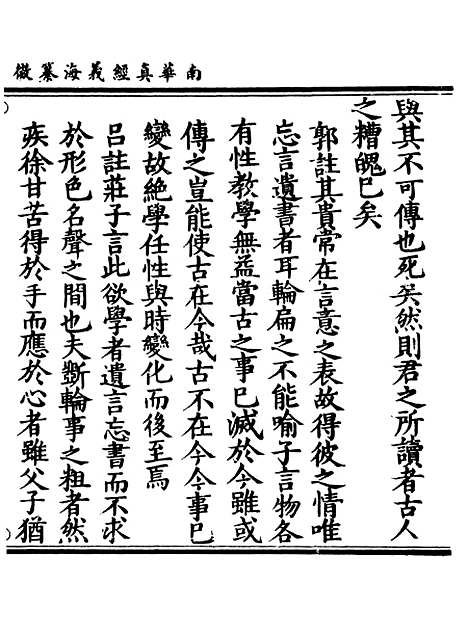 南華真經義海纂微
與其不可傳也死矣然則君之所讀者古人
之糟魄已矣
郭註其貴常在言意之表故得彼之情唯
忘言遺書者耳輪扁之不能喻子言物各
有性教學無益當古之事已滅於今雖或
傳之豈能使古在今哉古不在今今事已
變故絶學任性與時變化而後至焉
吕註莊子言此欲學者遺言忘書而不求
於形色名聲之間也夫斲輪事之粗者然
疾徐甘苦得於手而應於心者雖父子猶